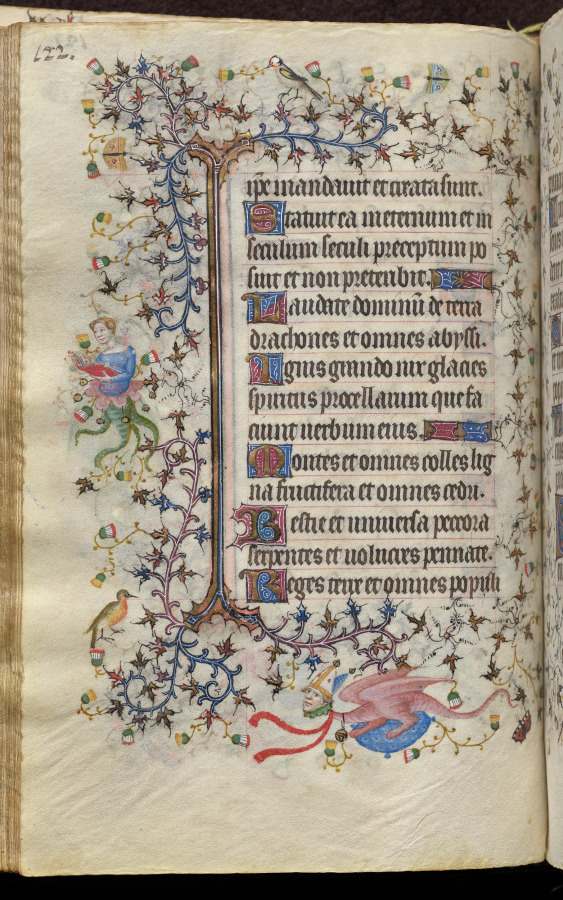 182.
ip̄e mandauit et creata sunt.
Statuit ea in eternum et in
seculum seculi preceptum po
suit et non preteribit.
Laudate dominū de terra
drachones et omnes abyssi.
Ignis grando nix glacies
spiritus procellarum que fa
ciunt uerbum eius.
Montes et omnes colles lig
na fructifera et omnes cedri.
Bestie et uniuersa peccora
serpentes et uolucres pennate.
Reges terre et omnes populi